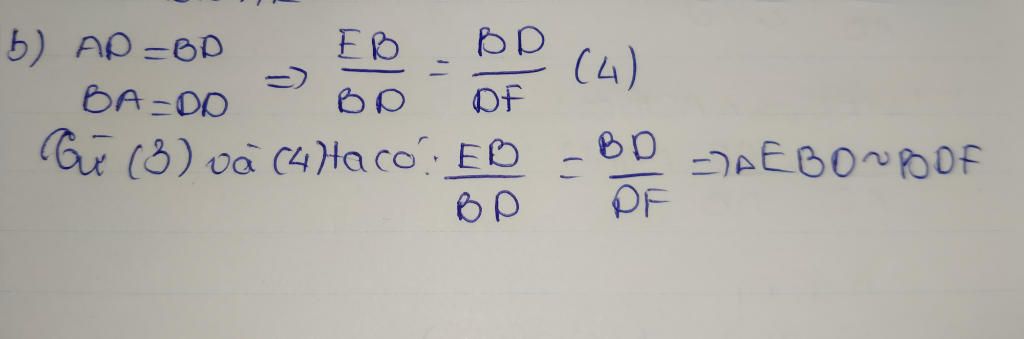 b) AD = BD
BA = DD => EB/BD = BD/DF (4)
Từ (3) và (4) ta có: EB/BD = BD/DF => △EBD ~ BDF